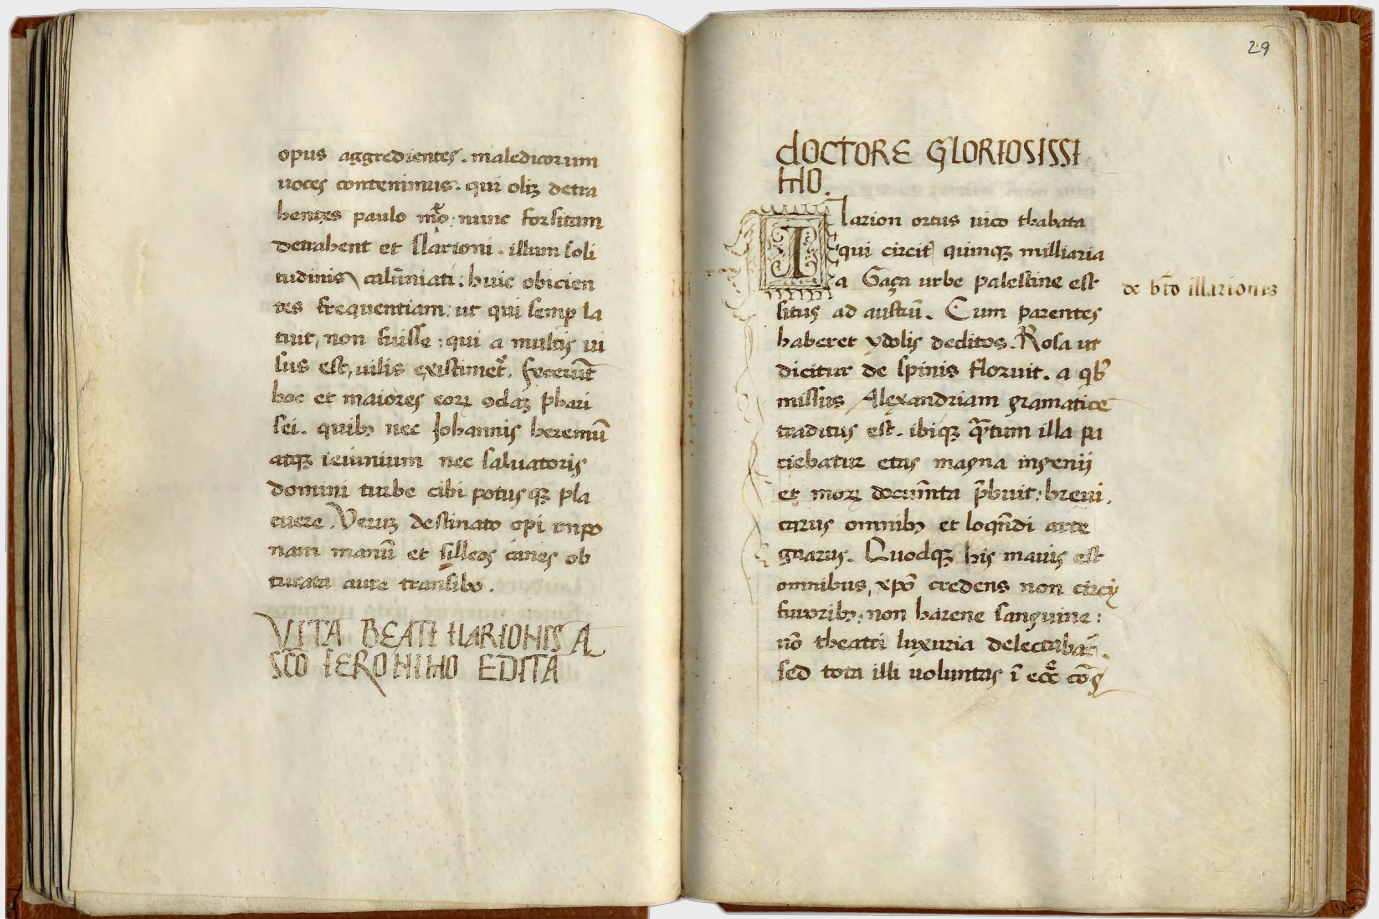 opus aggredientes. maledicorum
uoces contenimus. qui oliʒ detra
hentes paulo mō: nunc forsitam
detrahent et Ilarioni. illum soli
tudinis calūniati: huic obicien
tes frequentiam: ut qui semp la
tuit, non fuisse: qui a multis ui
sus est, uilis existimet᷑. fecerūt
hoc et maiores eoꝝ phari
sei. quibꝫ nec Johannis heremū
atqꝫ ieiunium nec saluatoris
domini turbe cibi potusqꝫ pla
cuere. Veruꝫ destinato opi impo
nam manū et silleos canes ob
turata aure transibo.
VITA BEATI ILARIONIS A
SCO IERONIMO EDITA
29
DOCTORE GLORIOSISSI
MO.
Ilarion ortus uico thabata
qui circit᷑ quinqꝫ milliaria
a Gaça urbe palestine est
situs ad austrū. Cum parentes
haberet ydolis deditos. Rosa ut
dicitur de spinis floruit. a qbꝰ
missus Alexandriam gramatice
traditus est. ibiqꝫ qᷓtum illa pa
ciebatur etas magna ingenij
et moꝝ documn̄ta p̄buit: breui.
carus omnibꝫ et loqn̄di arte
gnarus. Quodqꝫ his maius est
omnibus, xpō credens non circi
furoribꝫ: non harene sanguine:
nō theatri luxuria delectabat᷑.
sed tota illi uoluntas ī
de bt̄o illarionis